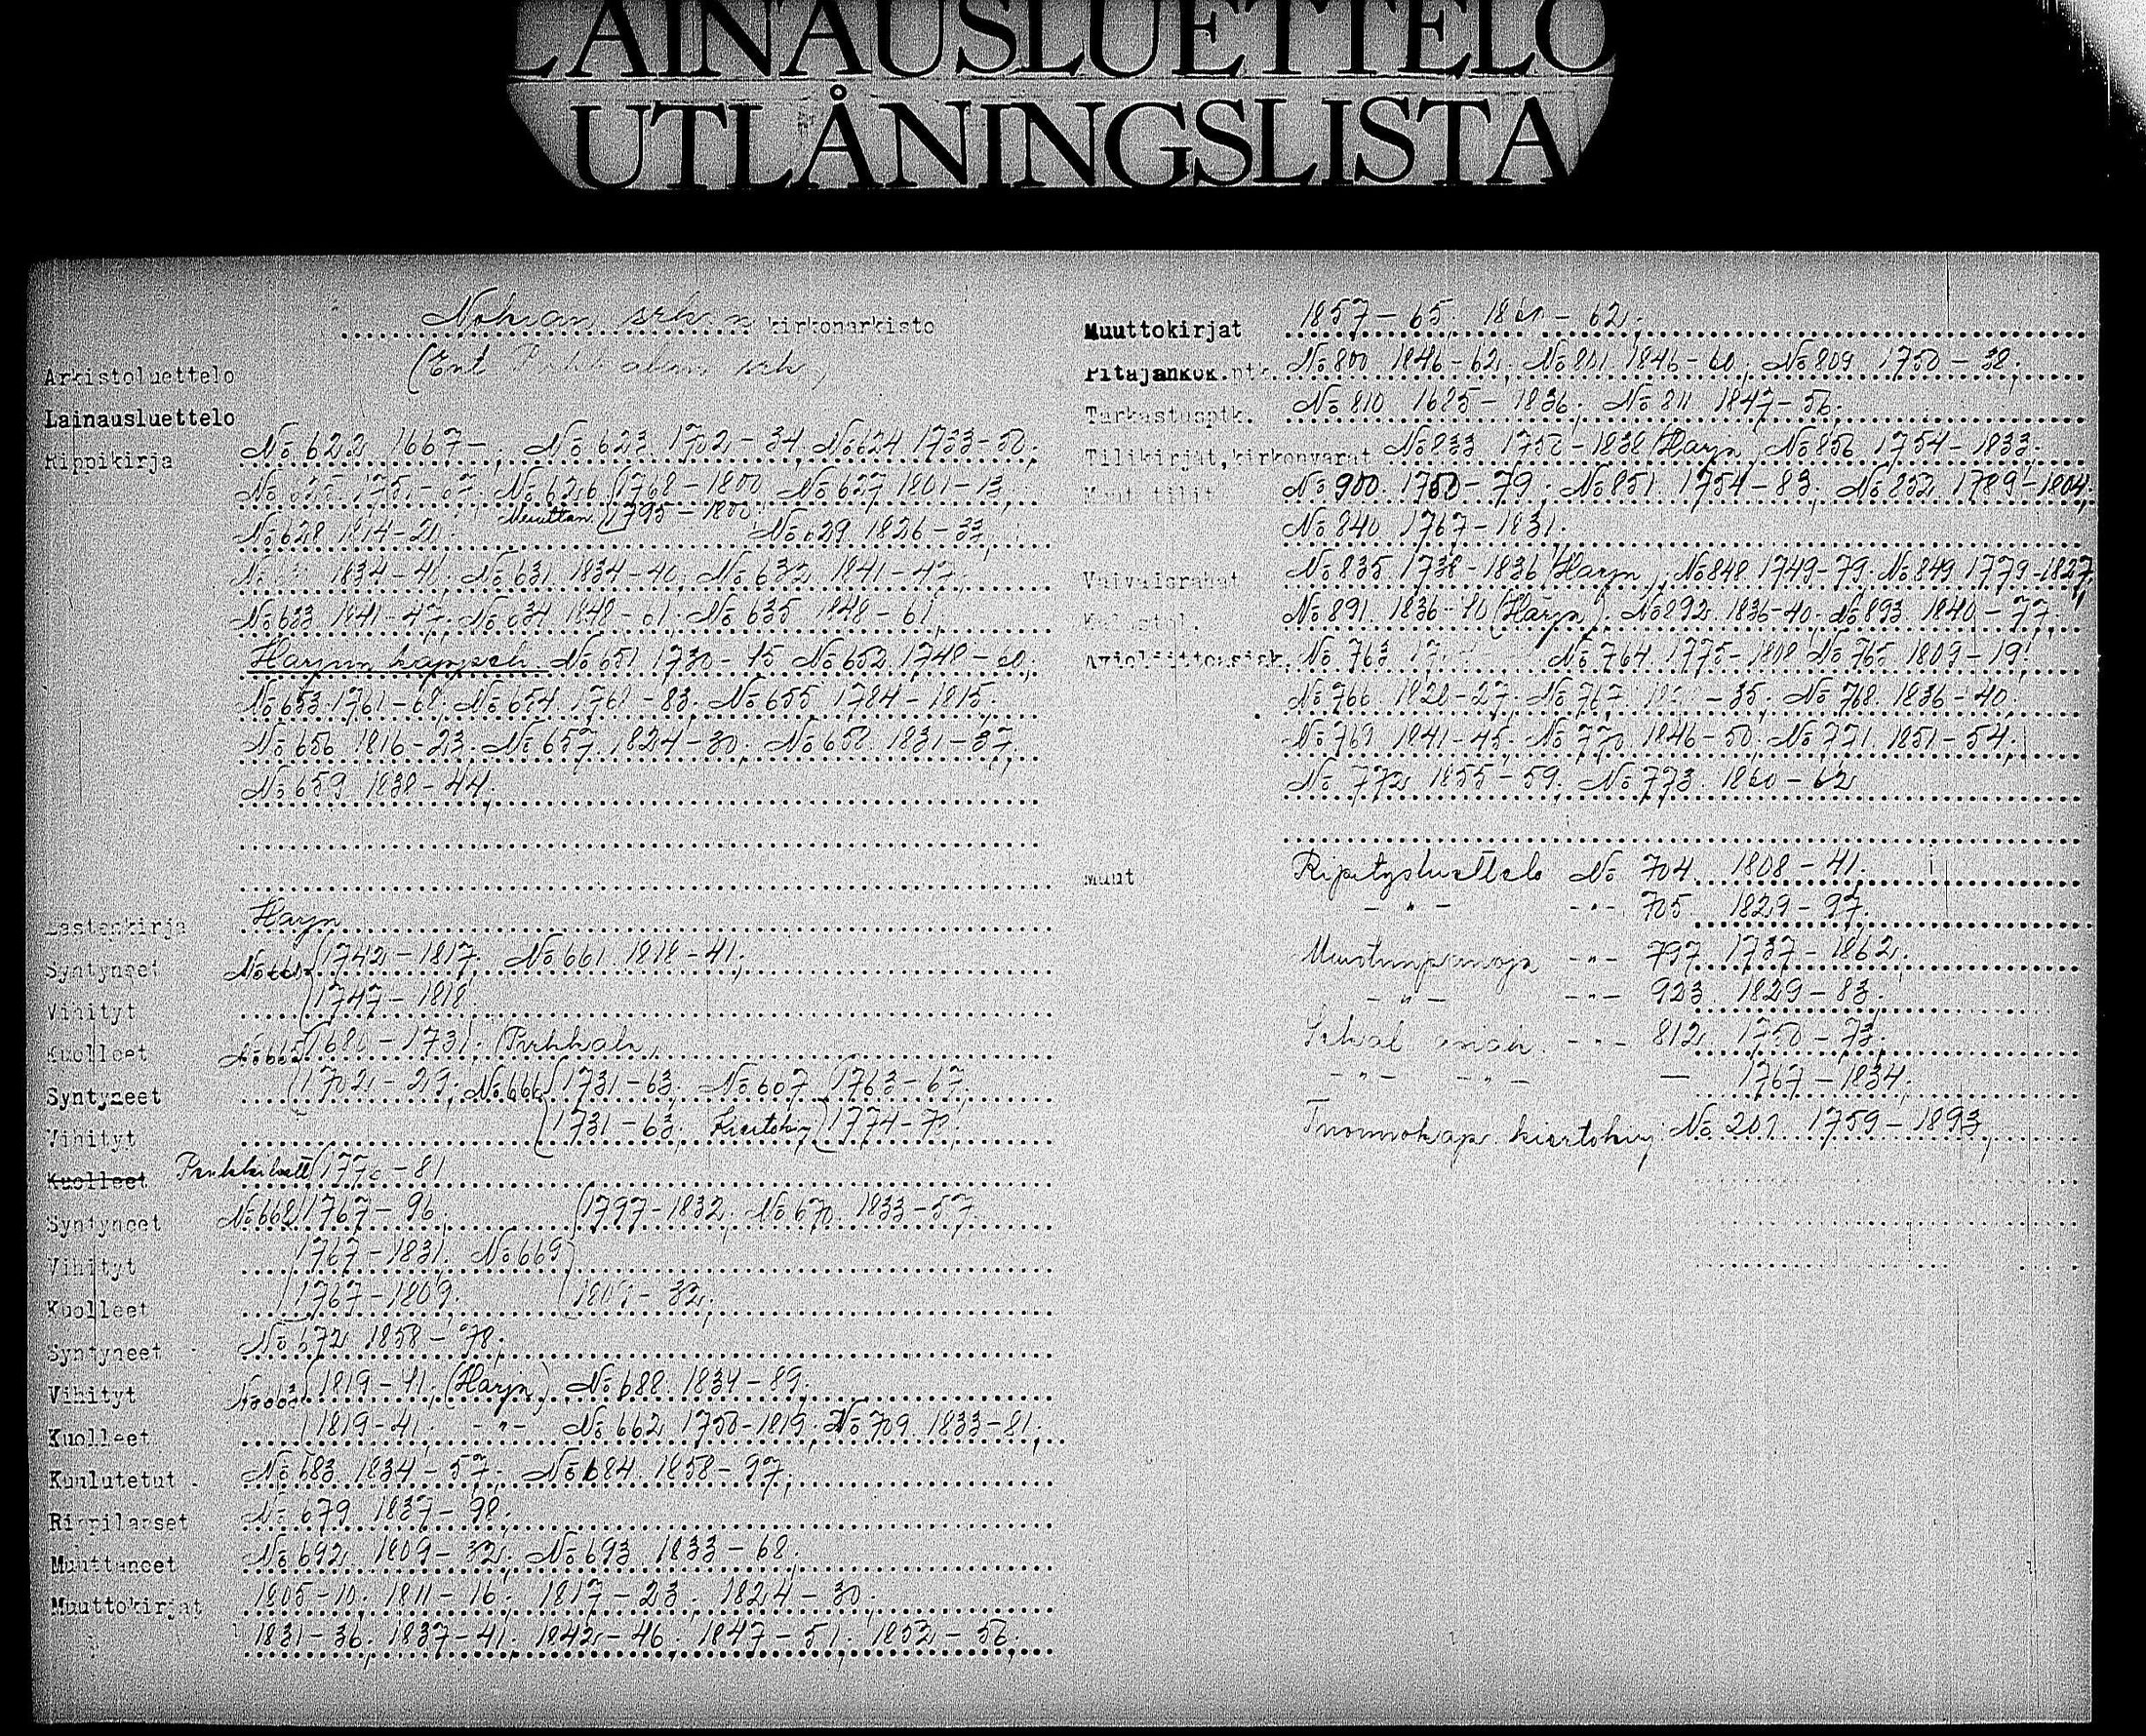 LAINAUSLUETTELO
UTLÅNINGSLISTA
Nokian srk:n kirkonarkisto
(Ent Pirkkalan srk)
Arkistoluettelo
Lainausluettelo
Rippikirja No 622 1667-; No 623 1702-34, No 624 1733-50;
No 625 1751-67; No 626 1768-1800 No 627 1801-13,
Muuttan. 1795-1800
No 628 1814-20; No 629 1826-33,
1834-40; No 631 1834-40; No 632 1841-47,
No 633 1841-47; No 634 1848-61; No 635 1848-61,
Harjun kappeli No 651 1730-45 No 652 1748-60;
No 653 1761-68; No 654 1761-83; No 655 1784-1815;
No 656 1816-23; No 657 1824-30; No 658 1831-37,
No 659 1838-44;
Lastenkirja Harjn
Syntyneet 1742-1817; No 661 1818-41;
Vihityt 1747-1818
Kuolleet No 665 1680-1731; (Pirkkala)
Syntyneet 1702-29; No 666 1731-63; No 667 1763-67;
Vihityt 1731-63; Kiertokirj 1774-
Kuolleet 1770-81
Syntyneet No 668 1767-96; 1797-1832; No 670 1833-57
Vihityt 1767-1831; No 669
Kuolleet 1767-1809; 32;
Syntyneet No 672 1858-78;
Vihityt No 663 1819-41; (Harjn) No 688 1834-89;
Kuolleet 1819-41; -"- No 662 1750-1819; No 709 1833-81;
Kuulutetut No 683 1834-57; No 684 1858-97;
Rippilapset No 679 1837-98;
Muuttaneet No 692 1809-32; No 693 1833-68;
Muuttokirjat 1805-10; 1811-16; 1817-23; 1824-30;
1831-36; 1837-41; 1842-46; 1847-51; 1852-56;
Muuttokirjat 1857-65; 1861-62;
Pitäjänkok.ptk. No 800 1846-62; No 801 1846-60; No 809 1750-38;
Tarkastusptk. No 810 1685-1836; No 811 1847-56;
Tilikirjat, kirkonvarat No 833 1758-1838 (Harjn) No 850 1754-1833;
Muut tilit No 900 1750-79; No 851 1754-83; No 852 1789-1804,
No 840 1767-1831;
Vaivaisrahat No 835 1738-1836 (Harjn), No 848 1749-79; No 849 1779-1827,
No 891 1836-40 (Harjn); No 892 1836-40; No 893 1840-77,
Avioliittoasiak. No 763 No 764 1775-1808 No 765 1809-19;
No 766 1820-27; No 767 -35; No 768 1836-40,
No 769 1841-45; No 770 1846-50; No 771 1851-54;
No 772 1855-59; No 773 1860-62
Muut Ripitysluettelo No 704 1808-41;
-"- -"- 705 1829-97;
Muistiinpanoja -"- 797 1737-1862;
-"- -"- 923 1829-83;
Sekal asiak. -"- 812 1750-73;
-"- -"- — 1767-1834;
Tuomiokap kiertokirj No 201 1759-1893,